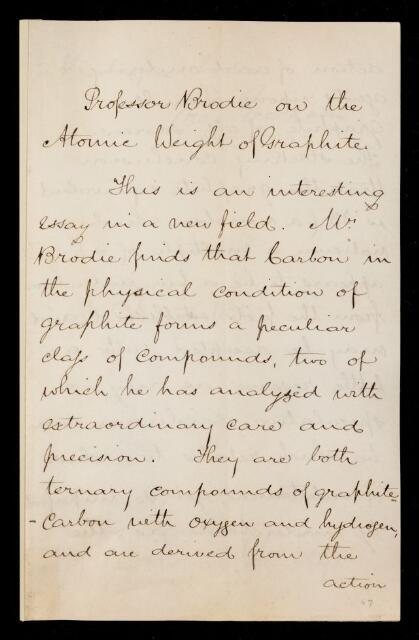 Professor Brodie on the
Atomic Weight of Graphite.
This is an interesting
essay in a new field. Mr
Brodie finds that Carbon in
the physical condition of
graphite forms a peculiar
class of compounds, two of
which he has analyzed with
extraordinary care and
precision. They are both
ternary compounds of graphite-
-Carbon with oxygen and hydrogen,
and are derived from the
action